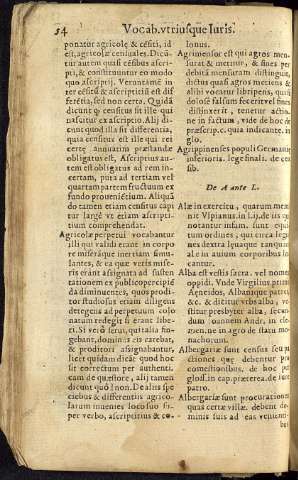 54 Vocab. vtriusque Iuris.
ponatur agricolę & cēsiti, id
est, agricolæ censuales. Dicū
tur autem quasi cēsibus ascri
pti, & constituuntur eo modo
quo ascriptij. Verūtamē in
ter cēsitū & ascriptitiū est dif
ferētia, sed non certa. Quidā
dicūt q censitus sit ille qui
nascitur ex ascriptio. Alij di
cunt quod illa sit differentia,
quia censitus est ille qui in
certę annuatim præstationi
obligatus est, Ascriptius au-
tem est obligatus ad rem in-
certam, puta ad tertiam vel
quartam partem fructuum ex
fundo prouenientium. Aliquā
do tamen etiam censitus capi
tur largè vt etiam ascripti
tium comprehendat.
Agricolæ perpetui vocabantur
illi qui validi erant in corpo
re miseráque inertiam simu-
lantes, & ea quæ vtriis mise-
ris erant assignata ad susten
rationem ex publico precipiē
da diminuentes, quos prodi-
tor studiosus eriam diligens
detegens ad perpetuum colo
natum redegit si erant libe-
ri. Si verò serui, qui talia fin-
gebant, dominis eis carebat,
& proditori assignabantur,
licèt quidam dicāt quòd hoc
sit correctum per authenti.
cam de quæstore, alij tamen
dicunt quòd non. De aliis spe
ciebus & differentiis agrico-
larum inuenies loco suo su-
per verbo, ascriptitius & co-
lonus.
Agrimensor est qui agros men
surat & metitur, & fines per
debitā mensuram distinguit,
dictus quasi agros metiens,
alibi vocatur libripens, qui si
dolosè falsum fecerit in fines
distinxerit, renetur actio-
ne in factum, vide de hoc de
præscrip. c. quia indicante. in
glo.
Agrippinenses populi Germaniæ
inferioris. lege finali. de cen
sib.
De A ante L.
Alæ in exercitu, quarum memi
nit Vlpianus in l.ij. de iis qui
notantur infam. sunt equi-
tum ordines, qui circa legio
nes dextra leuaque tanquam
alæ in auium corporibus lo-
cantur.
Alba est vestis sacra. vel nomen
oppidi. Vnde Virgilius primo
Aeneidos, Albanique patres,
&c. & dicitur vrbs alba, ve-
stitur presbyter alba, secun-
dum ioannem Andr. in cle-
men. ne in agro de statu mo-
nachorum.
Albergariæ sunt census seu præ
actiones quæ debentur pro
comestionibus, de hoc per
gloss. in cap. præterea. de iure
patro.
Albergariæ sunt procurationes
quas certæ villæ debent do-
minis suis ad eas venienti-
bus